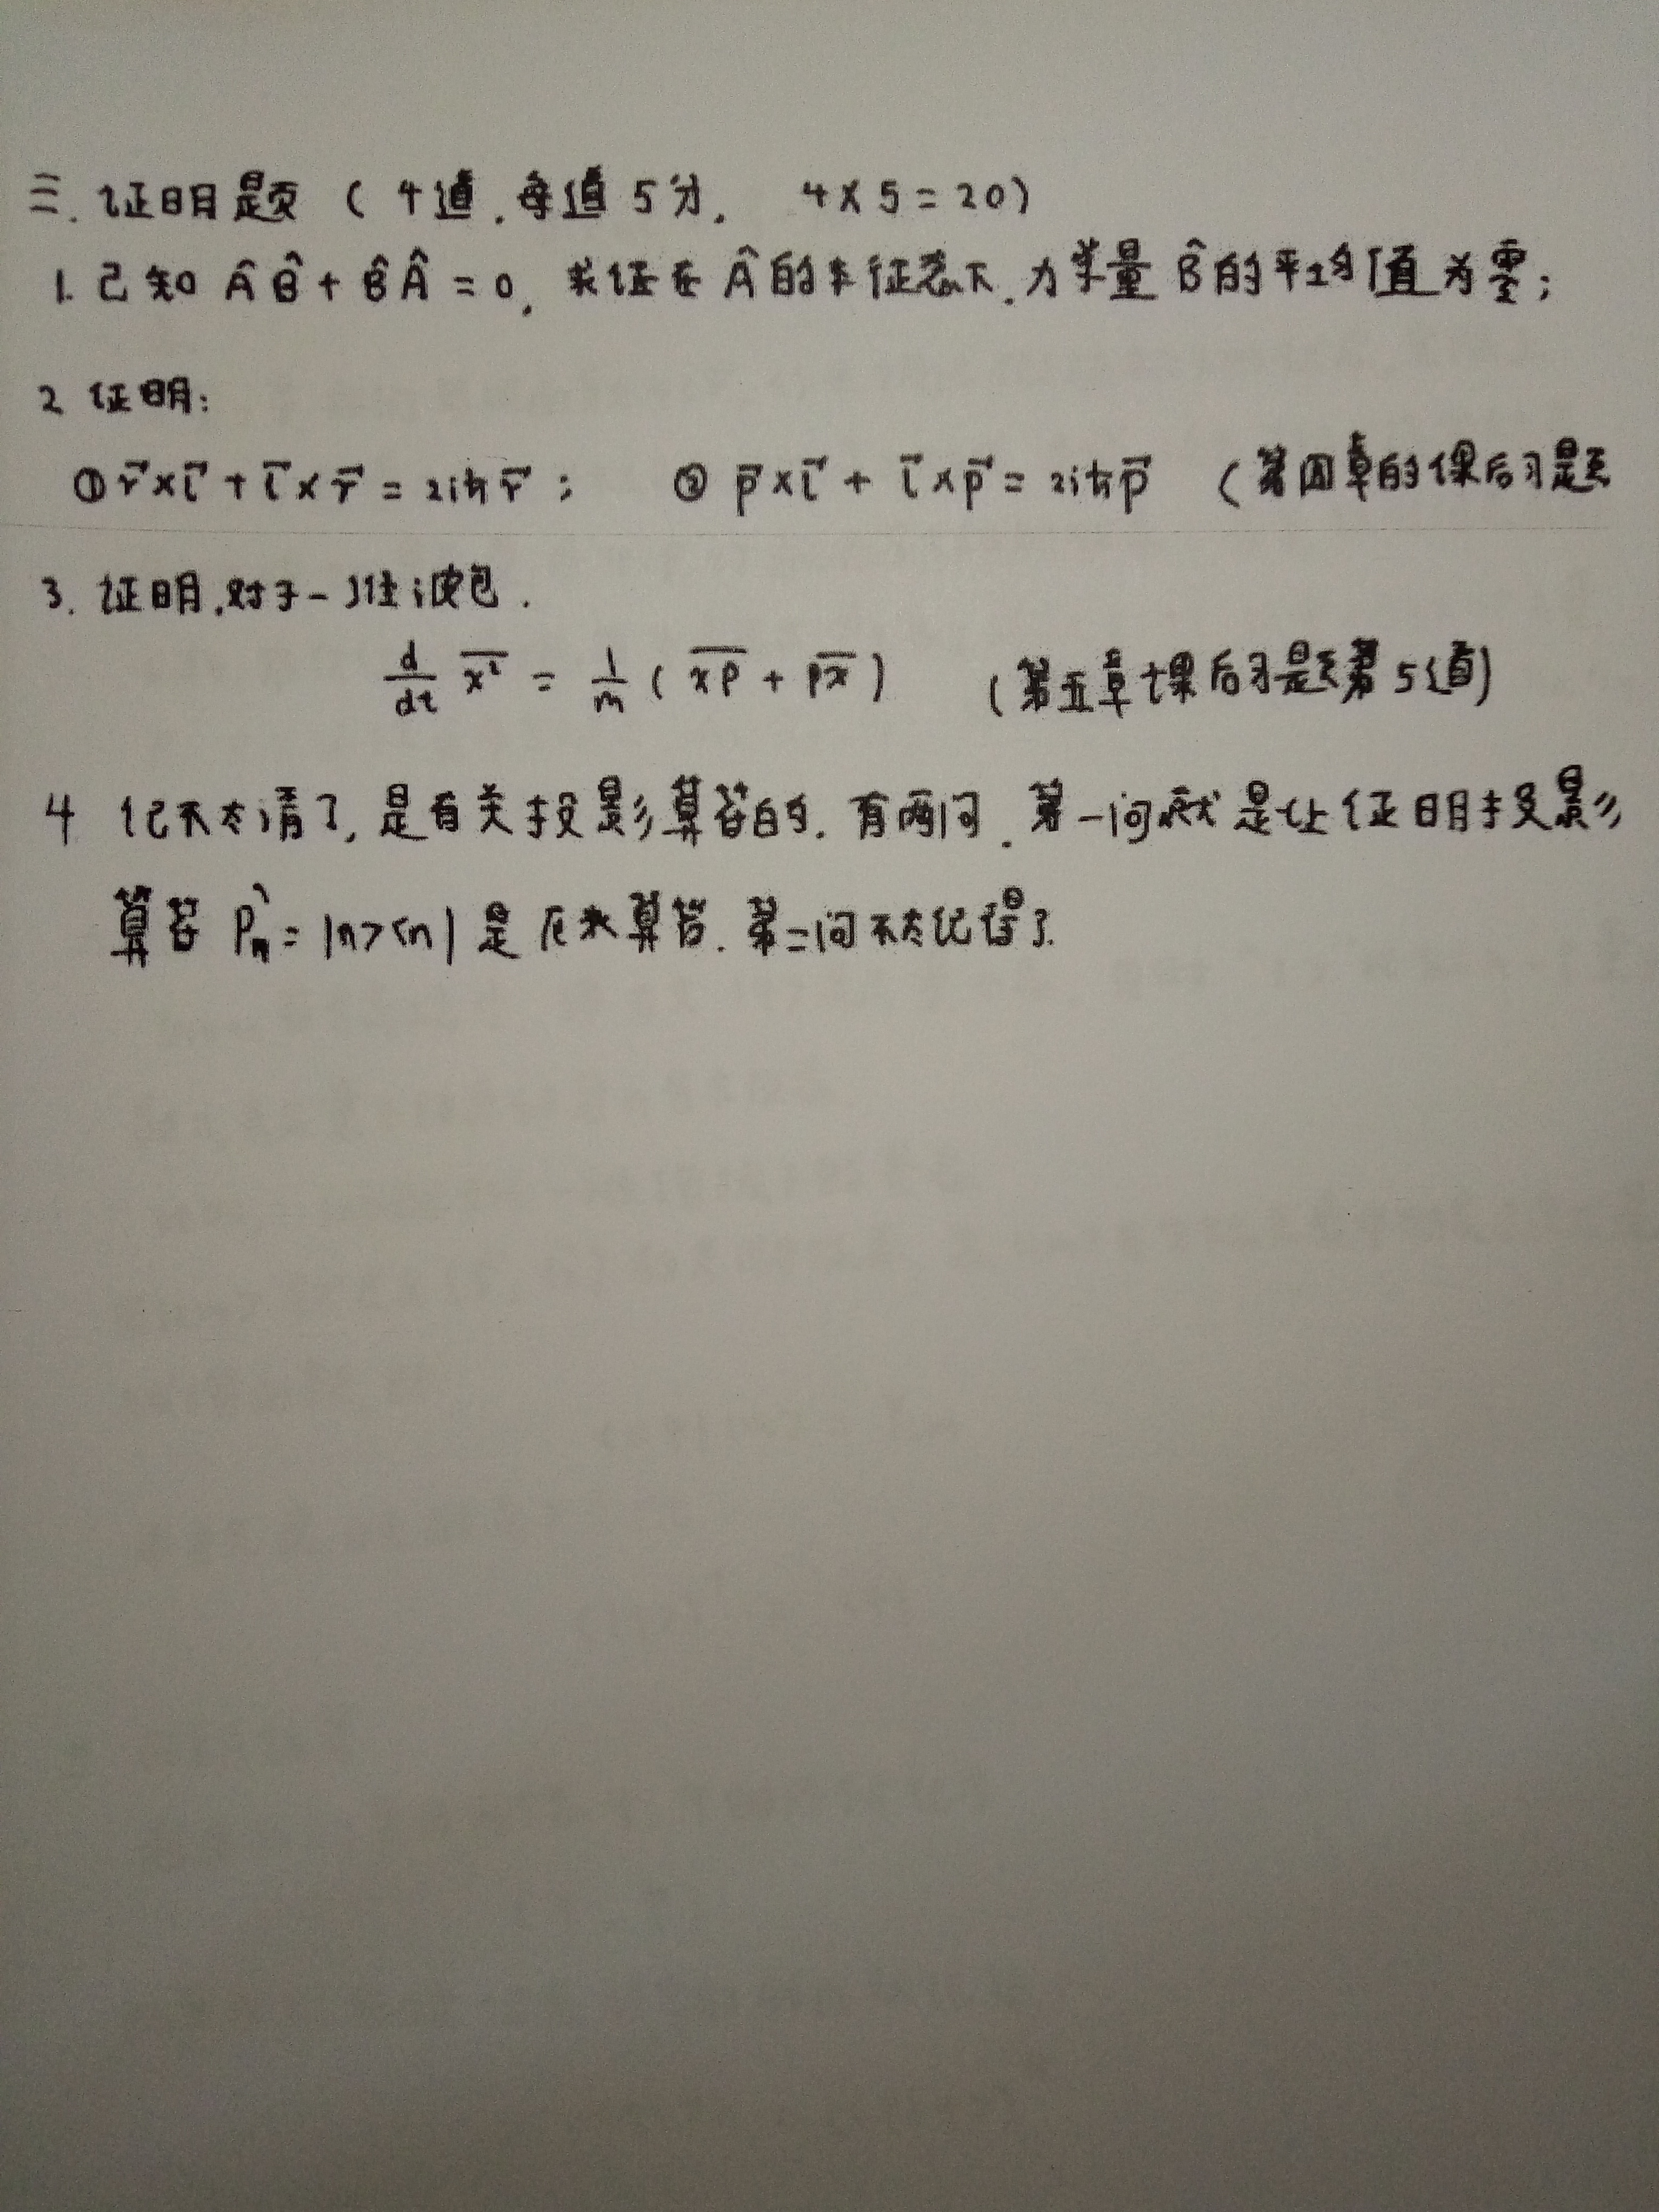 三. 证明题 ( 4道, 每道5分, 4×5=20)
1. 已知 ÂB̂+B̂Â=0, 求证在Â的本征态下, 力学量B̂的平均值为零;
2 证明:
① r⃗×l⃗ + l⃗×r⃗ = 2iħr⃗ ; ② p⃗×l⃗ + l⃗×p⃗ = 2iħp⃗ (第四章的课后习题
3. 证明, 对于一维波包.
d/dt x̅²̅ = 1/m ( x̅p̅ + p̅x̅ ) (第五章课后习题第5道)
4 记不太清了, 是有关投影算符的. 有两问. 第一问就是让证明投影
算符 P̂n = |n><n| 是厄米算符. 第二问不太记得了.